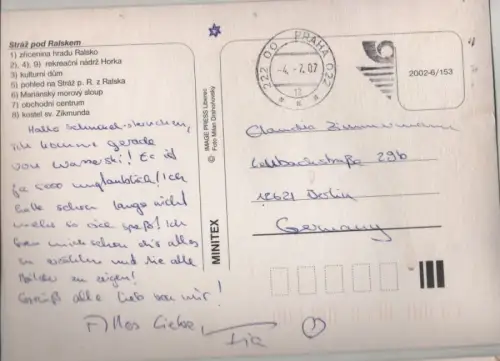 Stráž pod Ralskem
1) zřícenina hradu Ralsko
2), 4), 9) rekreační nádrž Horka
3) kulturní dům
5) pohled na Stráž p. R. z Ralska
6) Mariánský morový sloup
7) obchodní centrum
8) kostel sv. Zikmunda
Hallo
ich komme gerade
von ! Es ist
ja sooo unglaublich! Ich
hatte schon lange nicht
mehr so viel Spaß! Ich
dir alles
zu erzählen und die alle
Bilder zu zeigen!
Grüß alle lieb von mir!
Alles Liebe,
© IMAGE PRESS Liberec
Foto Milan Drahoňovský
MINITEX
222 00 PRAHA 022
-4.-7.02
2002-6/153
Claudia Zimmermann
29b
12621 Berlin
Germany